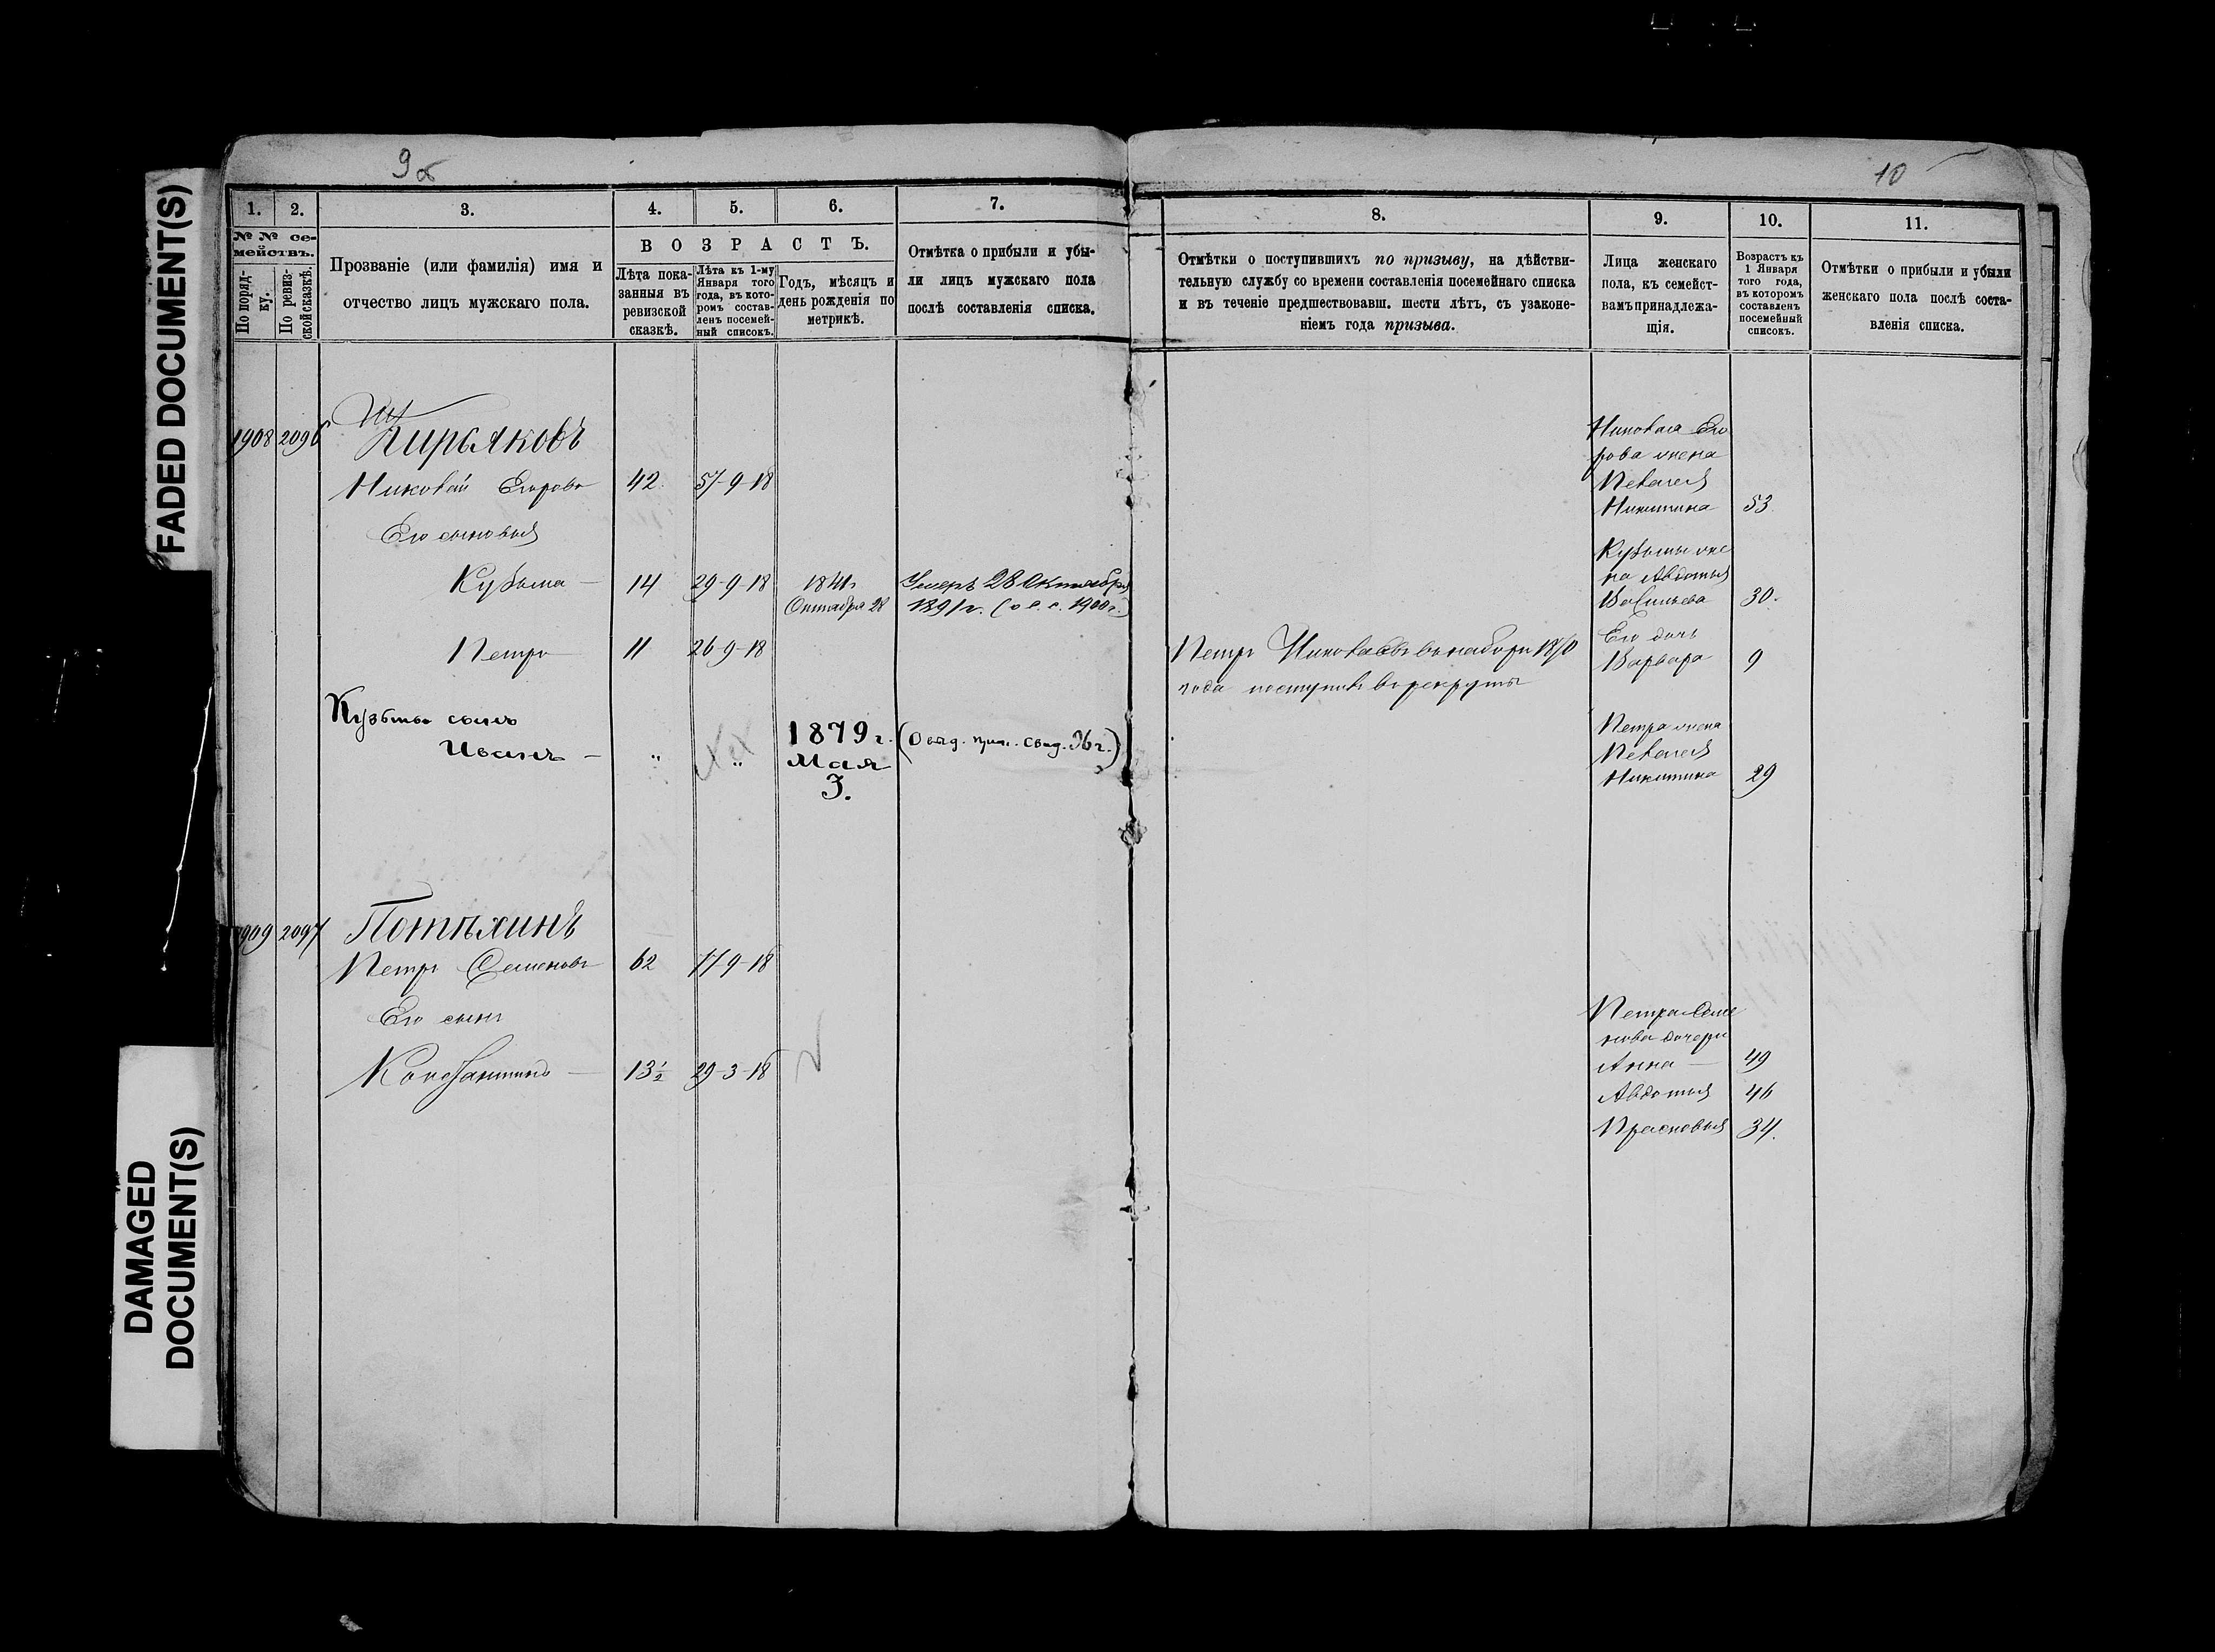 FADED DOCUMENT(S)
DAMAGED
DOCUMENT(S)
9б
1. 2. 3. 4. 5. 6. 7.
№ № се-
мействъ.
По поряд-
ку.
По ревиз-
ской сказкѣ.
Прозваніе (или фамилія) имя и
отчество лицъ мужскаго пола.
ВОЗРАСТЪ.
Лѣта пока-
занныя въ
ревизской
сказкѣ.
Лѣта къ 1-му
Января того
года, въ кото-
ромъ состав-
ленъ посемей-
ный списокъ.
Годъ, мѣсяцъ и
день рожденія по
метрикѣ.
Отмѣтка о прибыли и убы-
ли лицъ мужскаго пола
послѣ составленія списка.
1908 2096 Кирьяковъ
Николай Егоровъ 42 57-9-18
Его сыновья
Кузьма 14 29-9-18
Октября 28
Умеръ 28 Октября
1891 г.
Петръ 11 26-9-18
Кузьмы сынъ
Иванъ - " "
1879 г.
Мая
3.
1909 2097 Потѣхинъ
Петръ Семеновъ 62 77-9-18
Его сынъ
Константинъ 13½ 29-3-18
10
8. 9. 10. 11.
Отмѣтки о поступившихъ по призыву, на дѣйстви-
тельную службу со времени составленія посемейнаго списка
и въ теченіе предшествовавш. шести лѣтъ, съ узаконе-
ніемъ года призыва.
Лица женскаго
пола, къ семейст-
вамъ принадлежа-
щія.
Возрастъ къ
1 Января
того года,
въ которомъ
составленъ
посемейный
списокъ.
Отмѣтки о прибыли и убыли
женскаго пола послѣ соста-
вленія списка.
Николая Его
рова жена
Пелагея
Никитина 53
Кузьмы же
на Авдотья
Васильева 30.
Его дочь
Варвара 9
Петръ Николаевъ въ наборъ 1870
года поступилъ в рекруты
Петра жена
Пелагея
Никитина 29
Петра Семе
нова дочери
Анна 49
Авдотья 46
Прасковья 34.